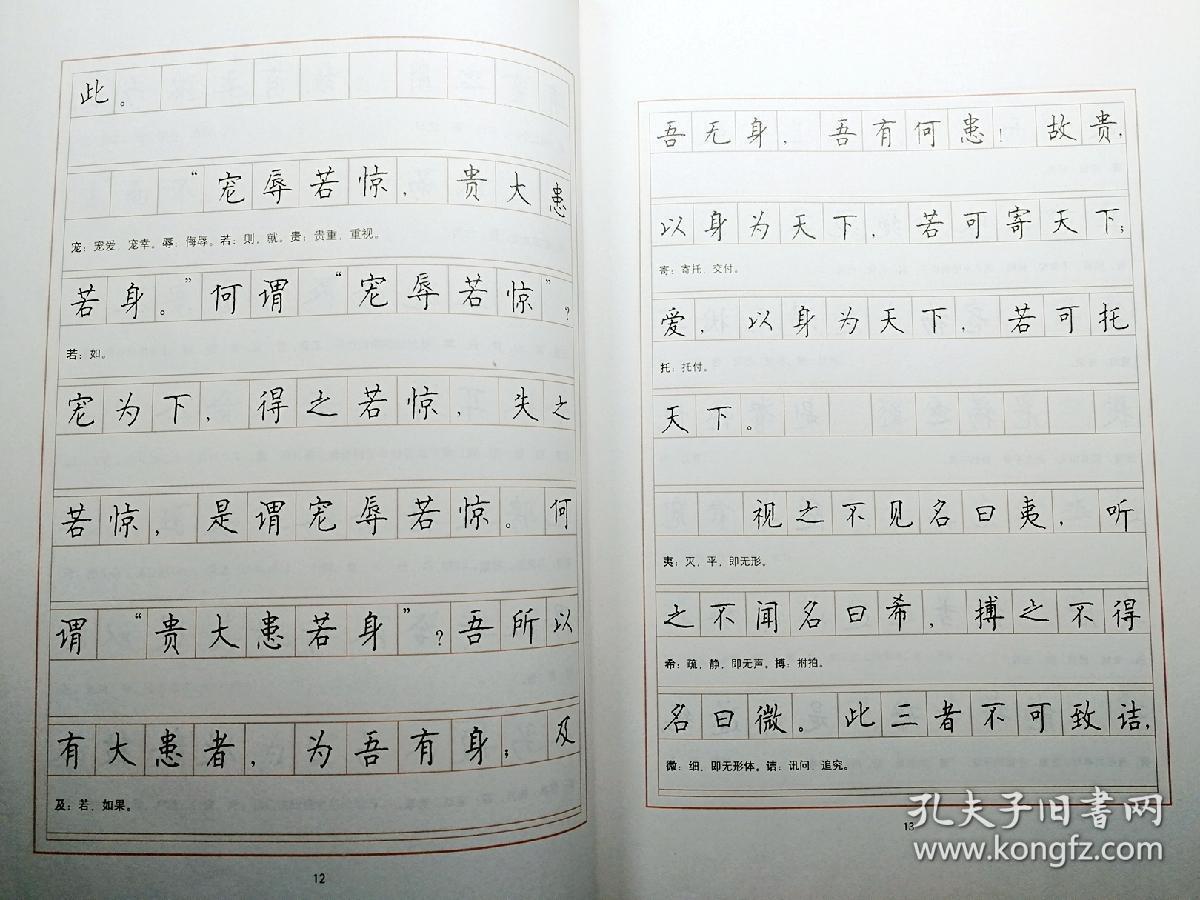 此。
“宠辱若惊，贵大患
宠：宠爱，宠幸。辱：侮辱。若：则，就。贵：贵重，重视。
若身。”何谓“宠辱若惊”？
若：如。
宠为下，得之若惊，失之
若惊，是谓宠辱若惊。何
谓“贵大患若身”？吾所以
有大患者，为吾有身；及
及：若，如果。
12
吾无身，吾有何患！故贵，
以身为天下，若可寄天下；
寄：寄托，交付。
爱，以身为天下，若可托
托：托付。
天下。
视之不见名曰夷，听
夷：灭，平，即无形。
之不闻名曰希，搏之不得
希：疏，静，即无声。搏：拊拍。
名曰微。此三者不可致诘，
微：细，即无形体。诘：讯问，追究。
13
孔夫子旧书网
www.kongfz.com